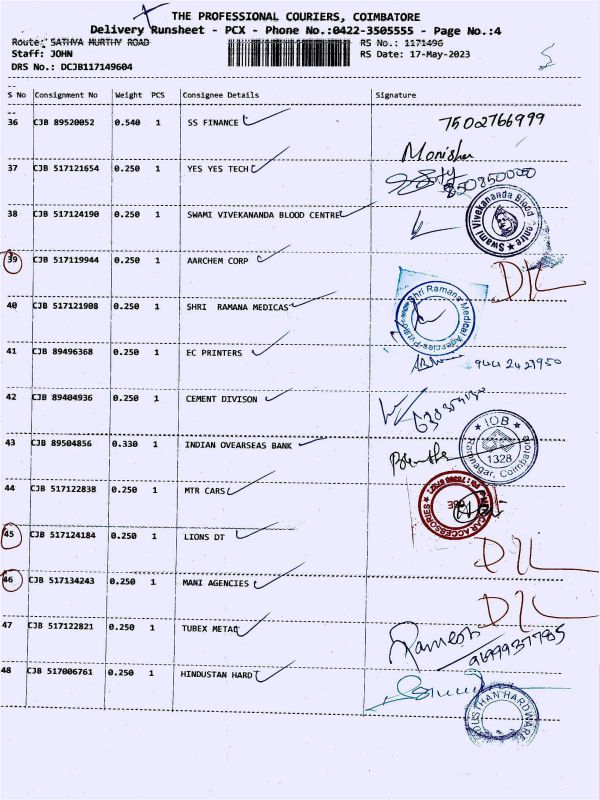 THE PROFESSIONAL COURIERS, COIMBATORE
Delivery Runsheet - PCX - Phone No.:0422-3505555 - Page No.:4
Route: SATHYA MURTHY ROAD RS No.: 1171496
Staff: JOHN RS Date: 17-May-2023
DRS No.: DCJB117149604
S No Consignment No Weight PCS Consignee Details Signature
36 CJB 89520052 0.540 1 SS FINANCE 7502766999
Monisha
37 CJB 517121654 0.250 1 YES YES TECH
38 CJB 517124190 0.250 1 SWAMI VIVEKANANDA BLOOD CENTRE
Swami Vivekananda Blood Centre
39 CJB 517119944 0.250 1 AARCHEM CORP D/L
40 CJB 517121908 0.250 1 SHRI RAMANA MEDICAS
Shri Ramana Medical Agencies
41 CJB 89496368 0.250 1 EC PRINTERS
42 CJB 89404936 0.250 1 CEMENT DIVISON
43 CJB 89504856 0.330 1 INDIAN OVEARSEAS BANK
IOB
1328
Ramnagar, Coimbatore
44 CJB 517122838 0.250 1 MTR CARS
CAR ACCESSORIES
45 CJB 517124184 0.250 1 LIONS DT D/L
46 CJB 517134243 0.250 1 MANI AGENCIES D/L
47 CJB 517122821 0.250 1 TUBEX METAL Ramesh
48 CJB 517006761 0.250 1 HINDUSTAN HARDT
HINDUSTHAN HARDWARE